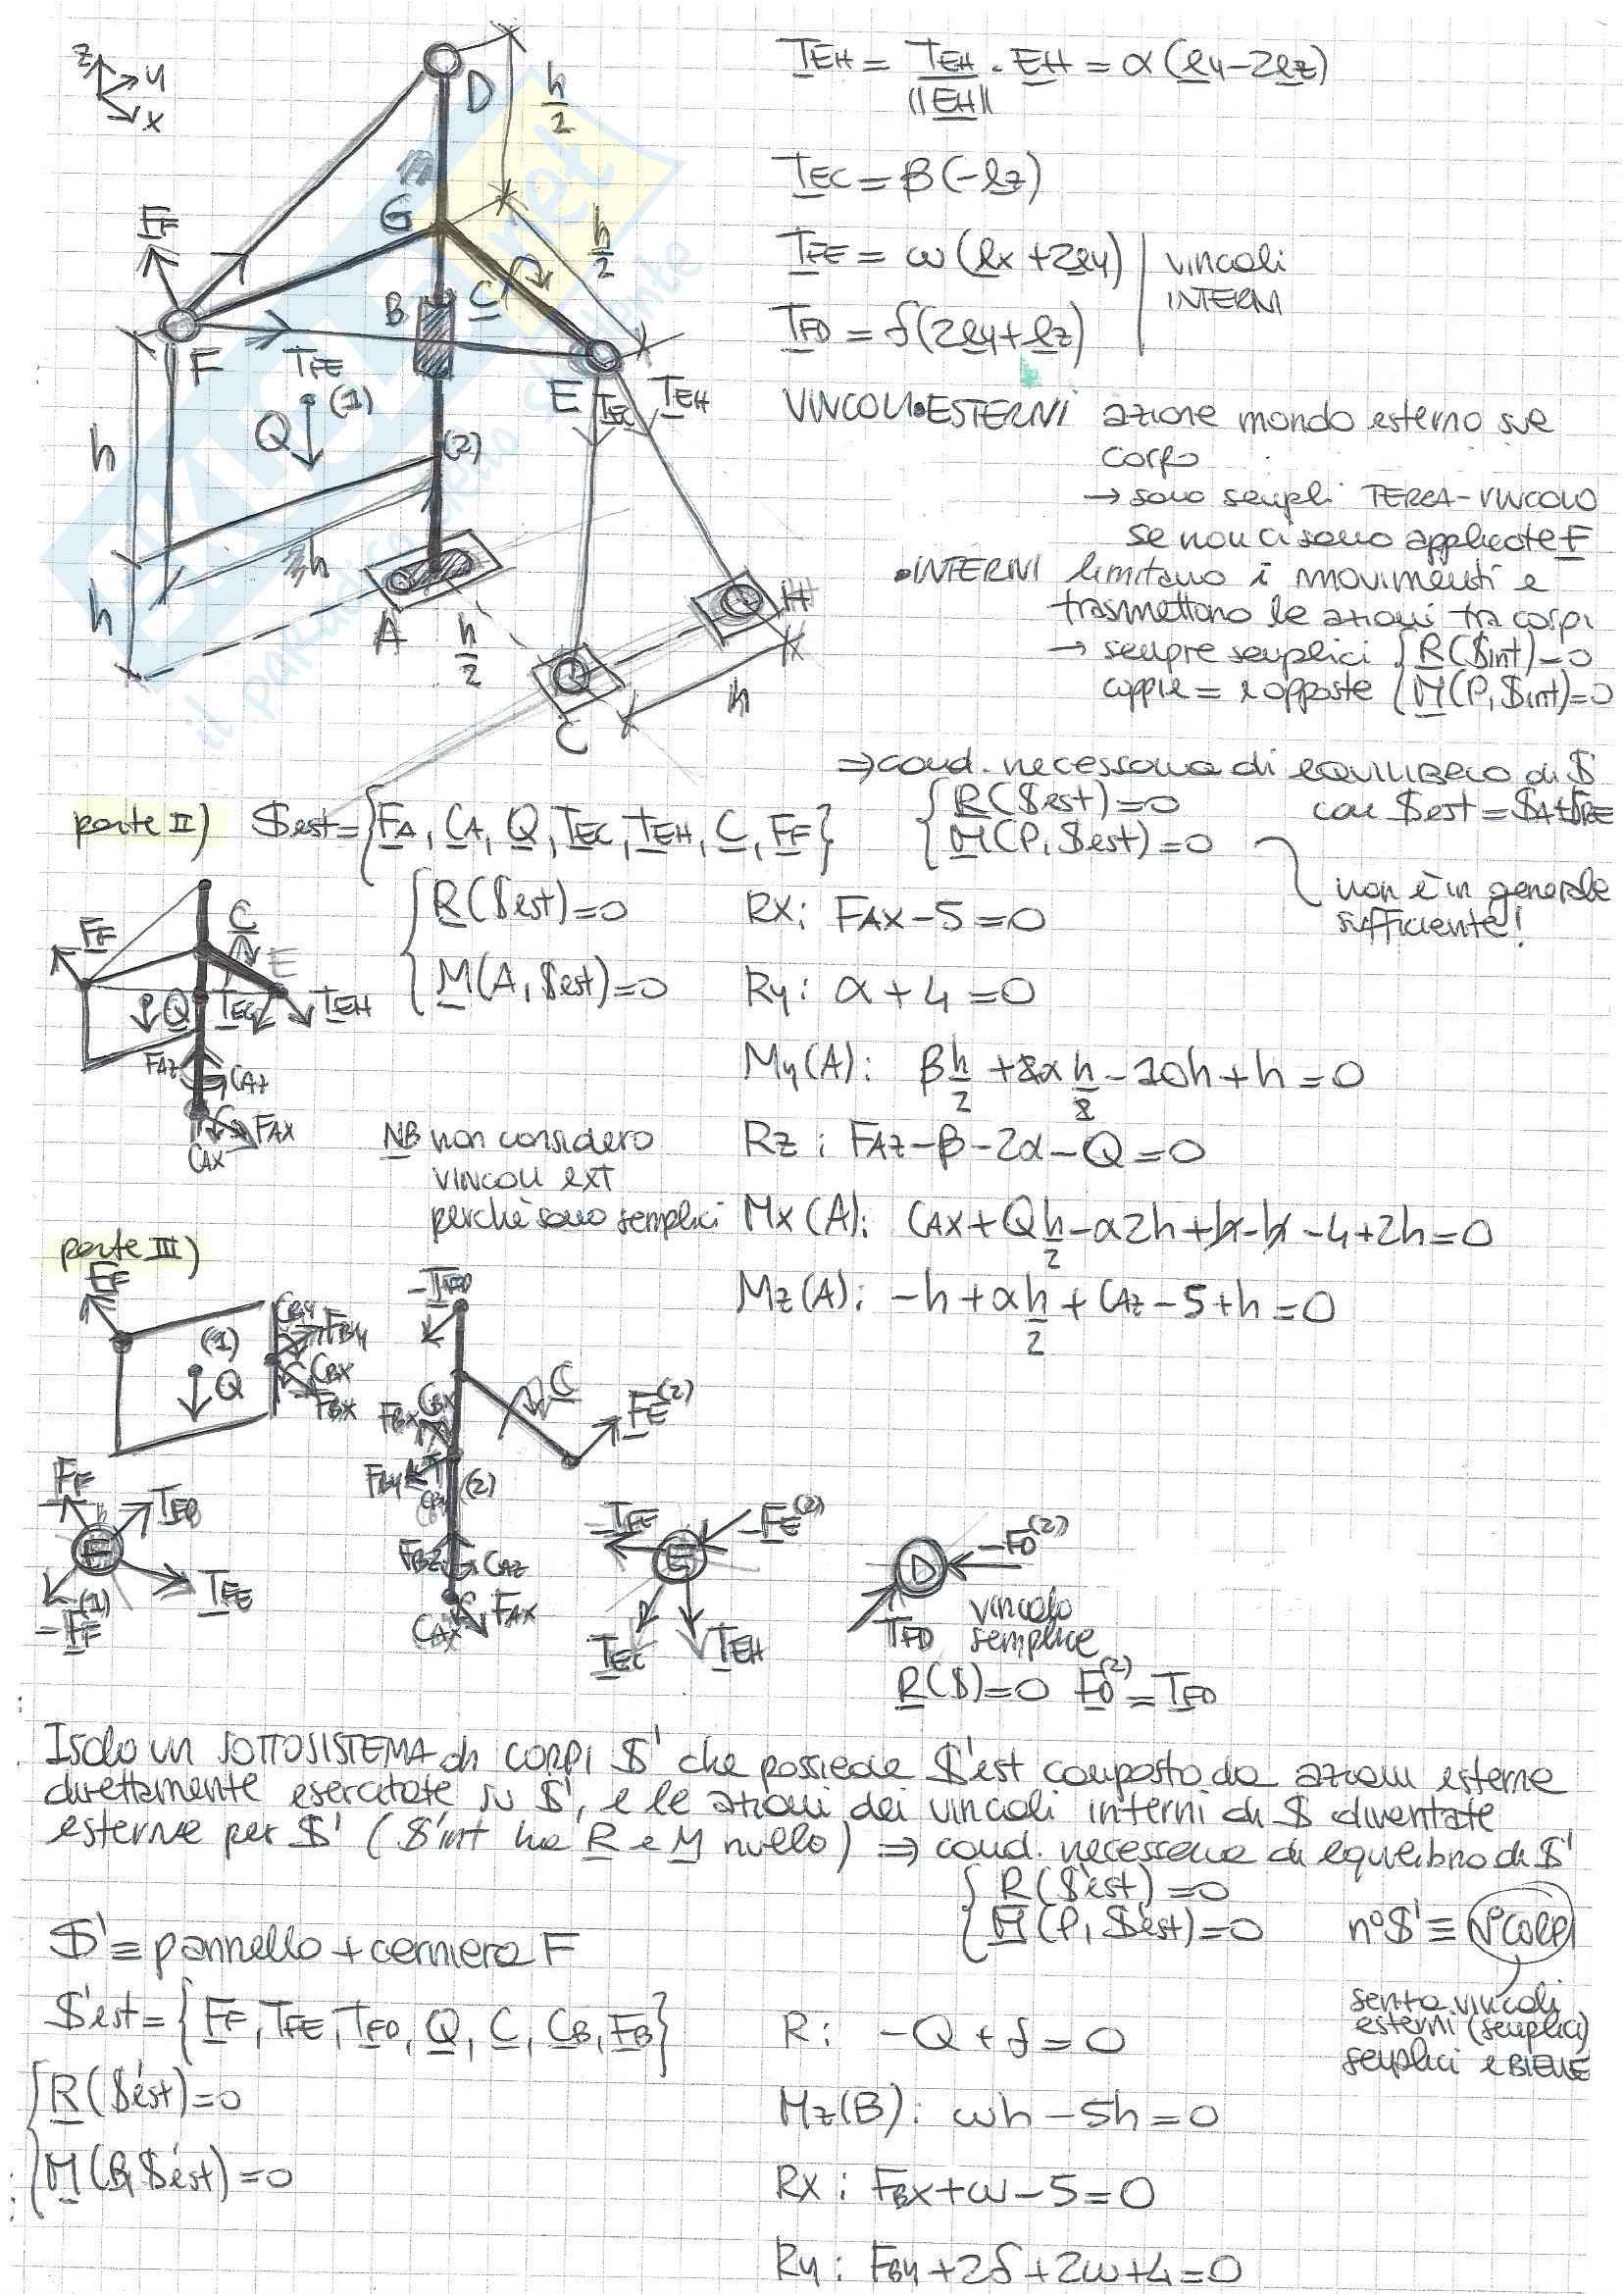 z
y
x
D
h/2
G
F_F
h/2
B
C
F
T_FE
E
T_EC
T_EH
(1)
Q
(2)
h
h
h
A
h/2
C
H
h
T_EH = T_EH/||EH|| · EH = α(ey-2ez)
T_EC = β(-ez)
T_FE = ω(ex+2ey)
T_FD = δ(2ey+ez)
vincoli
INTERNI
VINCOLI • ESTERNI azione mondo esterno sul
corpo
→ sono semplici TERRA-VINCOLO
se non ci sono applicate F
• INTERNI limitano i movimenti e
trasmettono le azioni tra corpi
→ sempre semplici { R($int)=0
coppie = e opposte { M(P,$int)=0
⇒ cond. necessaria di EQUILIBRIO di $
{ R($est)=0 con $est=
{ M(P,$est)=0
non è in generale
sufficiente!
parte II) $est={F_A, C_A, Q, T_EC, T_EH, C, F_F}
{ R($est)=0
{ M(A,$est)=0
Rx: FAx-5=0
Ry: α+4=0
My(A): βh/2 + 2αh/2 - 10h + h = 0
Rz: FAz-β-2α-Q=0
Mx(A): CAx+Qh/2-α2h+h-h-4+2h=0
Mz(A): -h+αh/2+CAz-5+h=0
F_F
C
E
Q
T_EC
T_EH
FAz
CAz
FAx
CAx
NB non considero
vincoli ext
perchè sono semplici
parte III)
F_F
(1)
Q
CBy
FBy
CBx
FBx
-T_FD
C
F_E(2)
CBx
FBx
FBy
(2)
CBy
FBz
CAz
FAx
CAx
F_F
F
T_FD
T_FE
-F_F(1)
-T_FE
E
-F_E(2)
T_EC
T_EH
D
-F_D(2)
T_FD
vincolo
semplice
R($)=0 F_D(2)=T_FD
Isolo un SOTTOSISTEMA di CORPI $' che possiede $'est composto da azioni esterne
direttamente esercitate su $', e le azioni dei vincoli interni di $ diventate
esterne per $' ($'int ha R e M nullo) ⇒ cond. necessaria di equilibrio di $'
{ R($'est)=0
{ M(P,$'est)=0
n° $' ≡ N°corpi
senza vincoli
esterni (semplici)
semplici e BIELLE
$' ≡ pannello + cerniera F
$'est={F_F, T_FE, T_FD, Q, C, C_B, F_B}
{ R($'est)=0
{ M(B,$'est)=0
R: -Q+δ=0
Mz(B): ωh-5h=0
Rx: FBx+ω-5=0
Ry: FBy+2δ+2ω+4=0